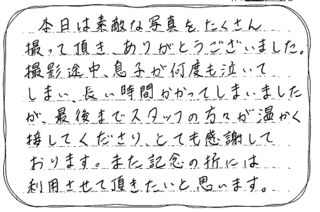 本日は素敵な写真をたくさん
撮って頂き、ありがとうございました。
撮影途中、息子が何度も泣いて
しまい、長い時間かかってしまいました
が、最後までスタッフの方々が温かく
接してくださり、とても感謝して
おります。また記念の折には
利用させて頂きたいと思います。